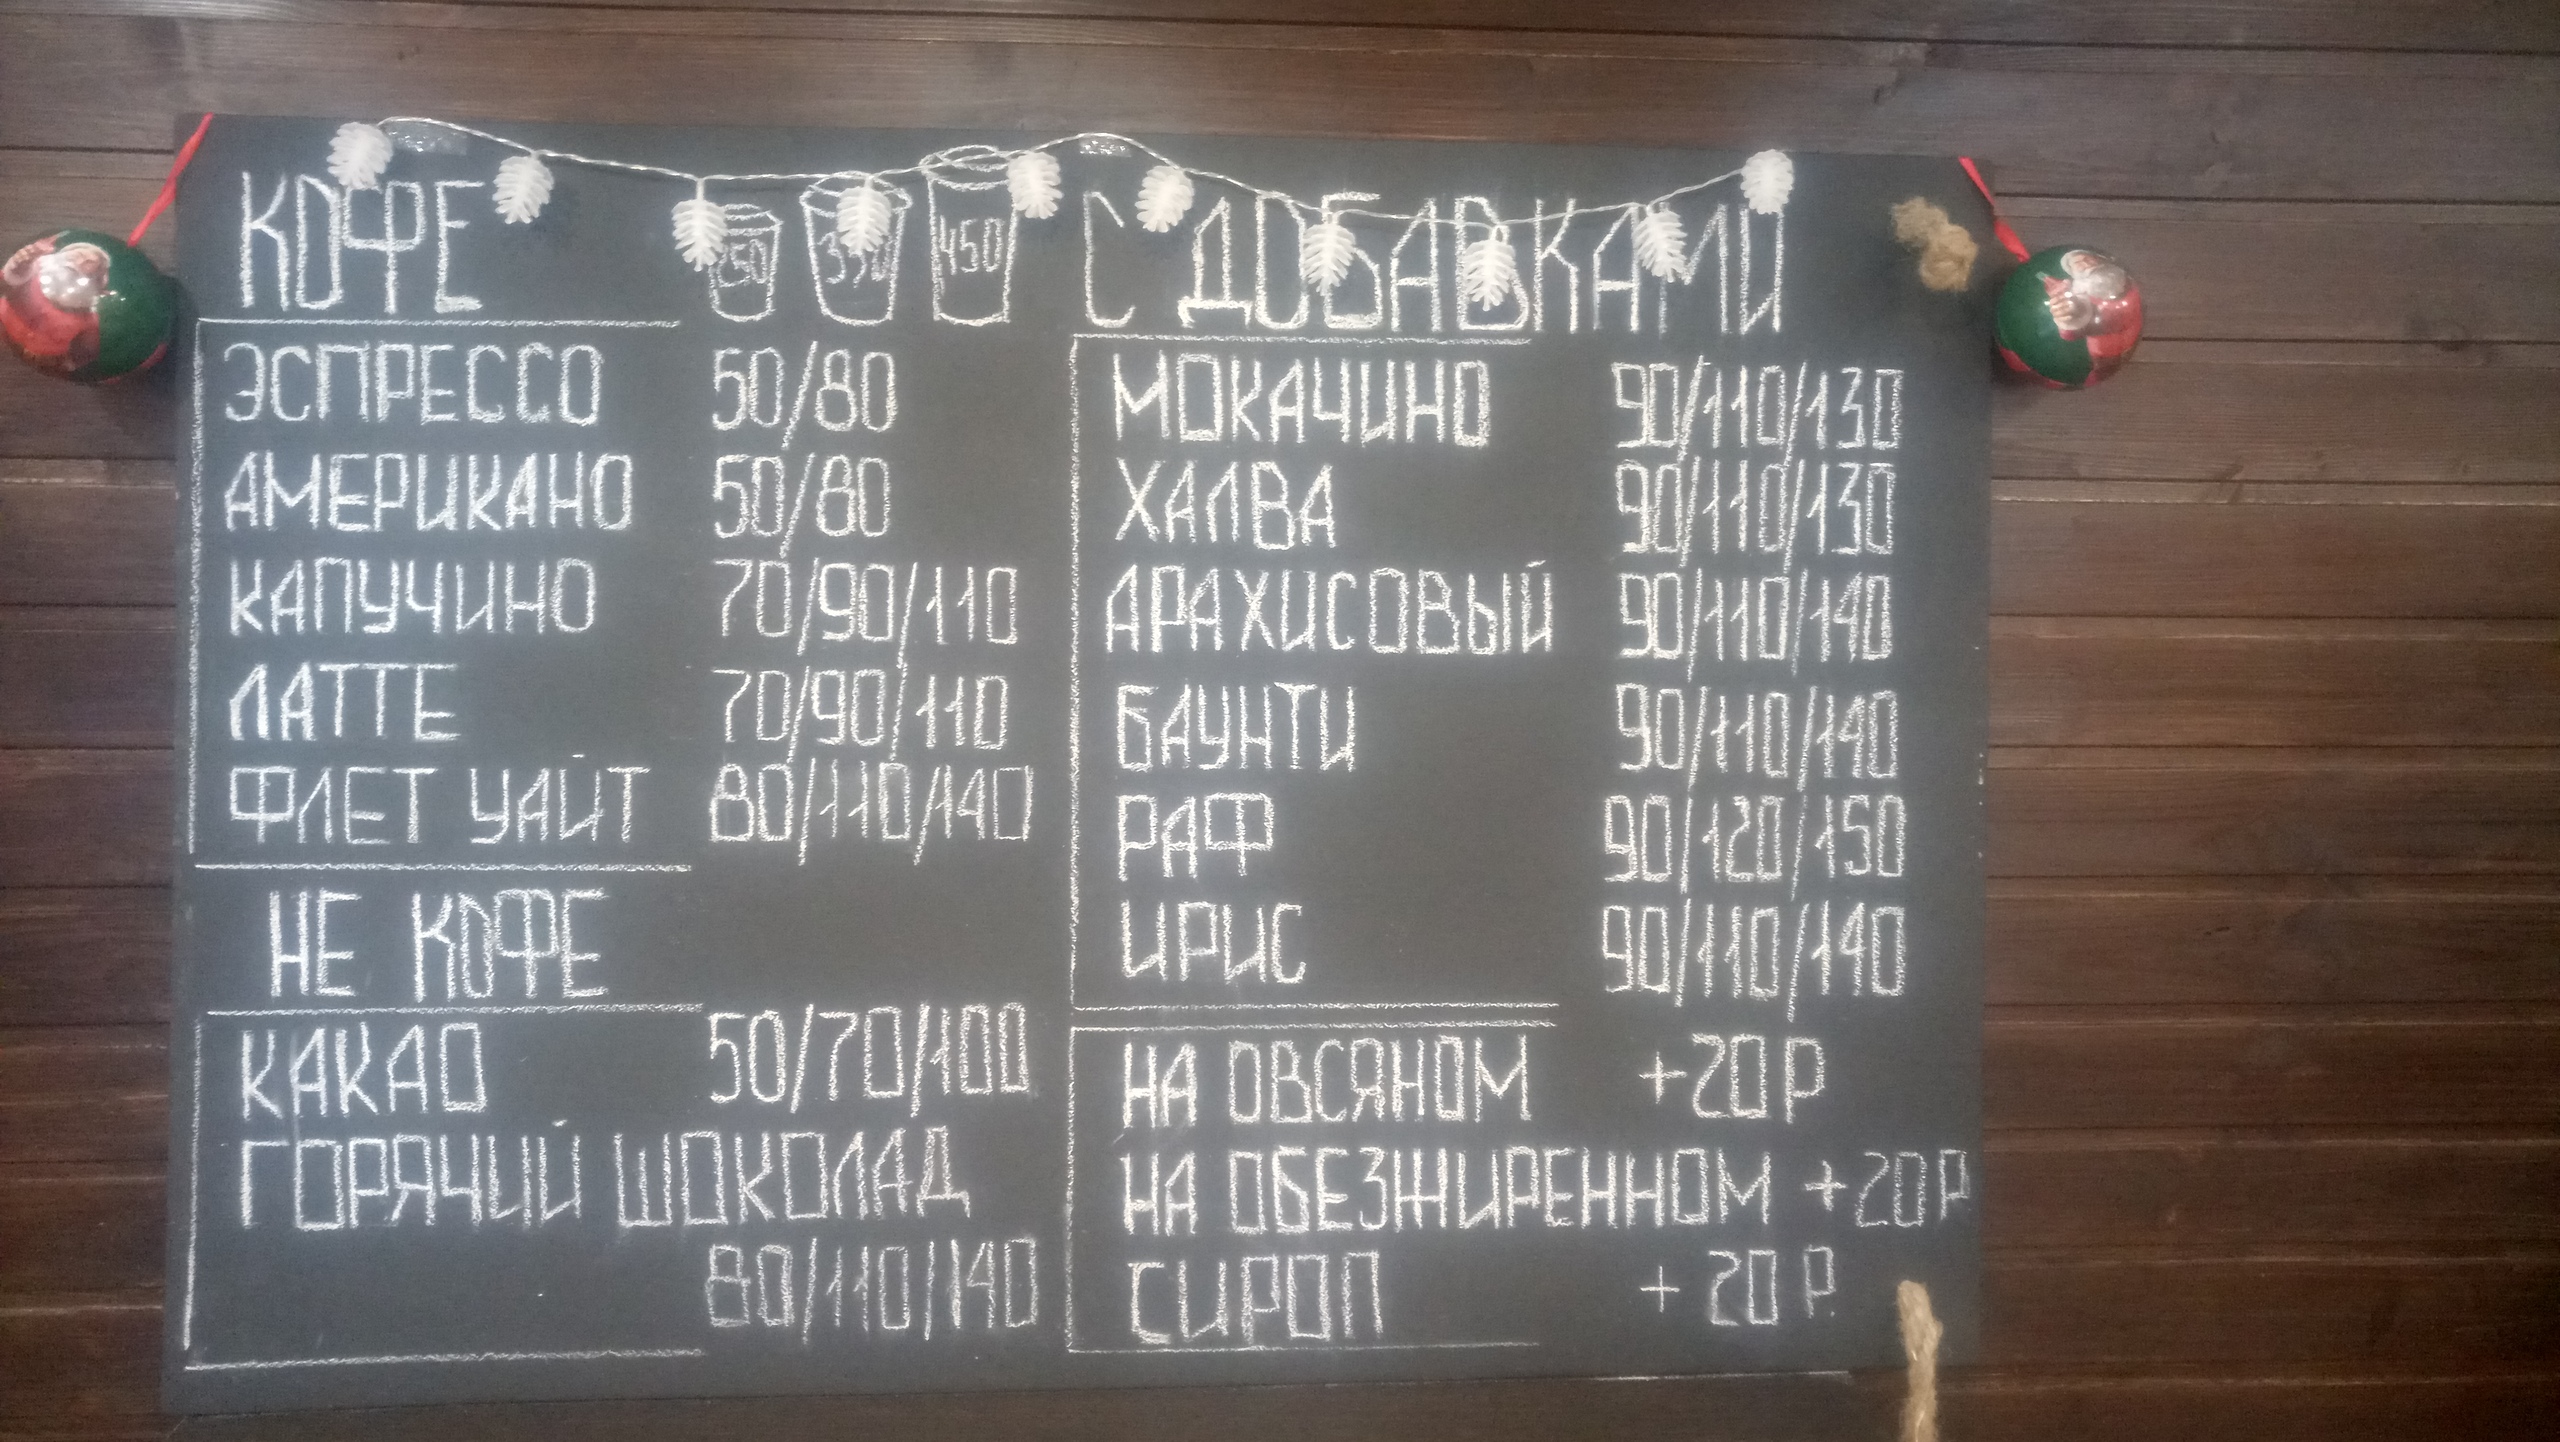 КОФЕ 250 350 450
ЭСПРЕССО 50/80
АМЕРИКАНО 50/80
КАПУЧИНО 70/90/110
ЛАТТЕ 70/90/110
ФЛЕТ УАЙТ 80/110/140
НЕ КОФЕ
КАКАО 50/70/100
ГОРЯЧИЙ ШОКОЛАД
80/110/140
С ДОБАВКАМИ
МОКАЧИНО 90/110/130
ХАЛВА 90/110/130
АРАХИСОВЫЙ 90/110/140
БАУНТИ 90/110/140
РАФ 90/120/150
ИРИС 90/110/140
НА ОВСЯНОМ +20 Р
НА ОБЕЗЖИРЕННОМ +20 Р
СИРОП + 20 Р.